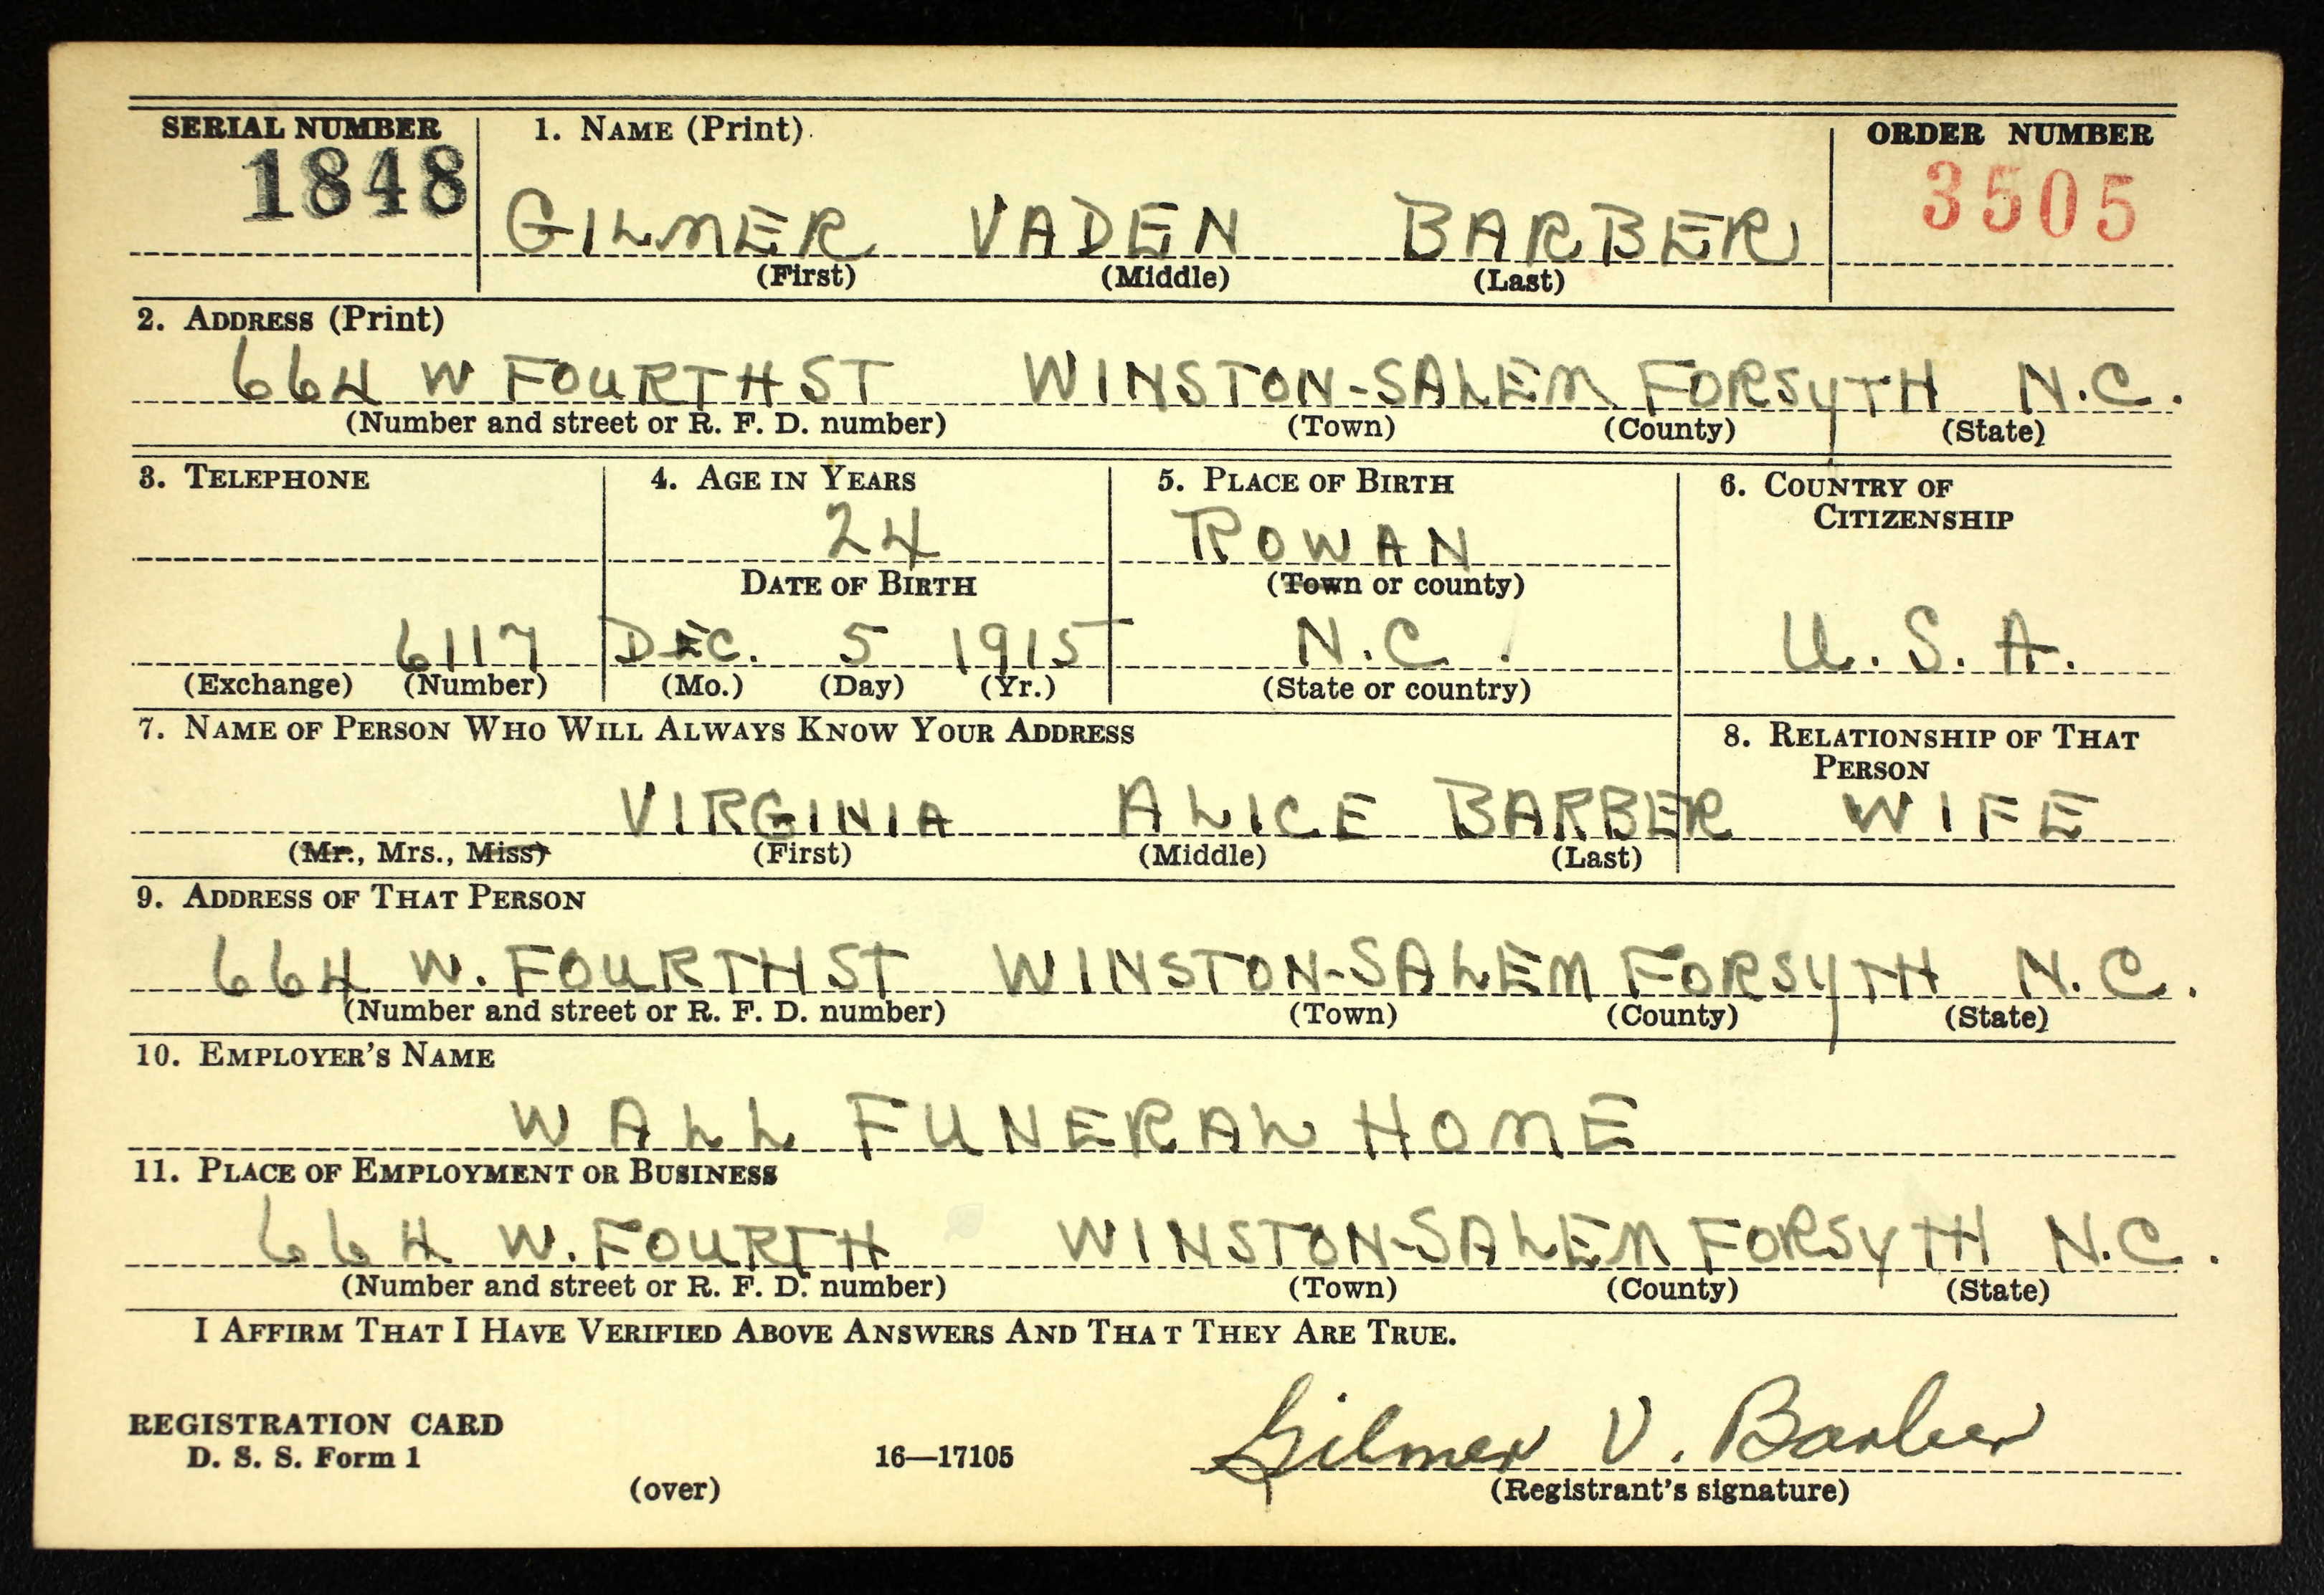 SERIAL NUMBER 1. NAME (Print) ORDER NUMBER
1848 GILMER VADEN BARBER 3505
(First) (Middle) (Last)
2. ADDRESS (Print)
664 W FOURTH ST WINSTON-SALEM FORSYTH N.C.
(Number and street or R. F. D. number) (Town) (County) (State)
3. TELEPHONE 4. AGE IN YEARS 5. PLACE OF BIRTH 6. COUNTRY OF
CITIZENSHIP
24 ROWAN
DATE OF BIRTH (Town or county)
6117 DEC. 5 1915 N.C. U.S.A.
(Exchange) (Number) (Mo.) (Day) (Yr.) (State or country)
7. NAME OF PERSON WHO WILL ALWAYS KNOW YOUR ADDRESS 8. RELATIONSHIP OF THAT
PERSON
VIRGINIA ALICE BARBER WIFE
(Mr., Mrs., Miss) (First) (Middle) (Last)
9. ADDRESS OF THAT PERSON
664 W. FOURTH ST WINSTON-SALEM FORSYTH N.C.
(Number and street or R. F. D. number) (Town) (County) (State)
10. EMPLOYER'S NAME
WALL FUNERAL HOME
11. PLACE OF EMPLOYMENT OR BUSINESS
664 W. FOURTH WINSTON-SALEM FORSYTH N.C.
(Number and street or R. F. D. number) (Town) (County) (State)
I AFFIRM THAT I HAVE VERIFIED ABOVE ANSWERS AND THAT THEY ARE TRUE.
REGISTRATION CARD
D. S. S. Form 1 16—17105 Gilmer V. Barber
(over) (Registrant's signature)